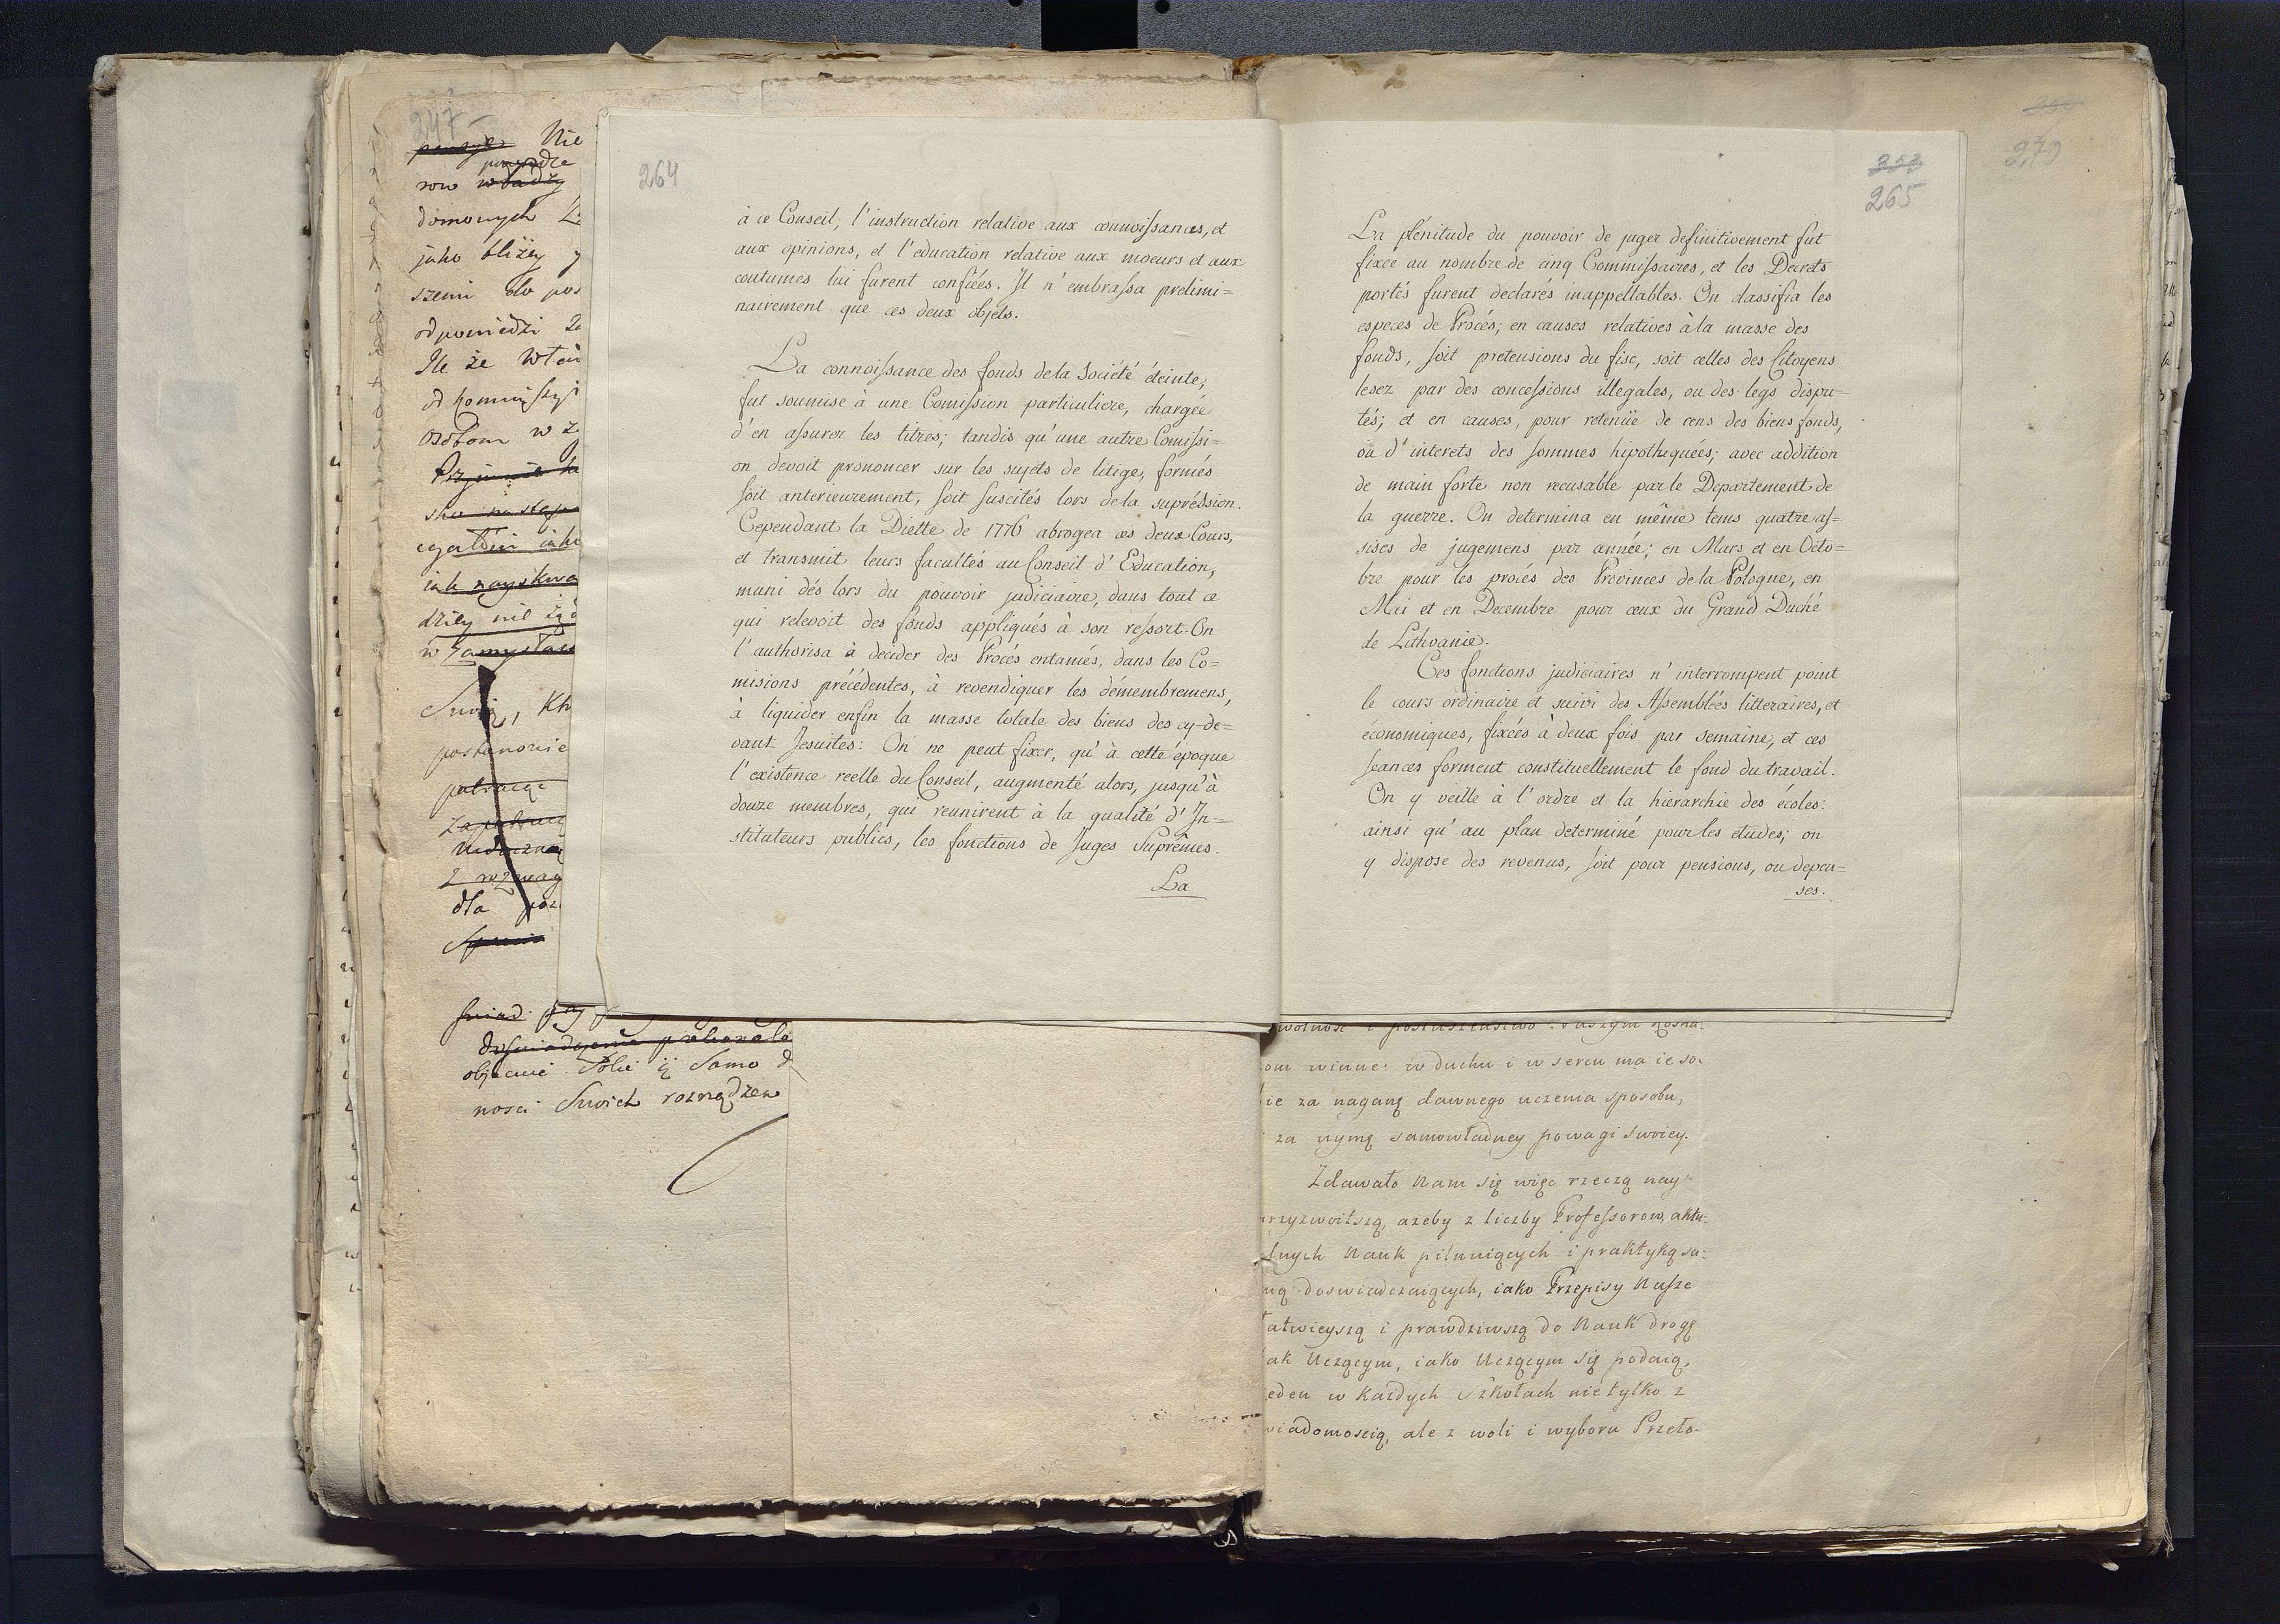 264
à ce Conseil, l'instruction relative aux connoissances, et
aux opinions, et l'education relative aux moeurs et aux
coutumes lui furent confiées. Il n'embrassa prelimi=
nairement que ces deux objets.
La connoissance des fonds de la Société éteinte,
fut soumise à une Comission particuliere, chargée
d'en assurer les titres; tandis qu'une autre Comissi=
on devoit prononcer sur les sujets de litige, formés
soit anterieurement, soit suscités lors de la supréssion.
Cependant la Diette de 1776 abrogea ces deux Cours,
et transmit leurs facultés au Conseil d'Education,
muni dés lors du pouvoir judiciaire, dans tout ce
qui relevoit des fonds appliqués à son ressort. On
l'authorisa à decider des Procés entamés, dans les Co=
misions précédentes, à revendiquer les démembremens,
à liquider enfin la masse totale des biens des cy-de=
vant Jesuites: On ne peut fixer, qu'à cette époque
l'existence reelle du Conseil, augmenté alors, jusqu'à
douze membres, qui reunirent à la qualité d'In=
stituteurs publics, les fonctions de Juges Suprêmes.
La
353
265
La plénitude du pouvoir de juger definitivement fut
fixée au nombre de cinq Commissaires, et les Decrets
portés furent declarés inappellables. On classifia les
especes de Procés; en causes relatives à la masse des
fonds, soit pretensions du fisc, soit celles des Citoyens
lesez par des concessions illegales, ou des legs dispu=
tés; et en causes, pour retenüe de cens des biens fonds,
ou d'interets des sommes hipothequées; avec addition
de main forte non recusable par le Departement de
la guerre. On determina en même tems quatre as=
sises de jugemens par année; en Mars et en Octo=
bre pour les procés des Provinces de la Pologne, en
Mai et en Decembre pour ceux du Grand Duché
de Lithvanie.
Ces fonctions judiciaires n'interrompent point
le cours ordinaire et suivi des Assemblées litteraires, et
économiques, fixéés à deux fois par semaine, et ces
seances forment constituellement le fond du travail.
On y veille à l'ordre et la hierarchie des écoles:
ainsi qu'au plan determiné pour les etudes; on
y dispose des revenus, soit pour pensions, ou depen=
ses.
247
Nie
row
domowych
jako bliżey
szemi do pos
odpowiedzi
Ile że
od kommissyi
osobom w
postanowie
dla
objecuie Sobie
nosci Swoich rozrządzen
279
om winne: w duchu i w sercu ma ie so
ie za naganę dawnego uczenia sposobu,
za uymę samowładney powagi swoiey.
Zdawało Nam się więc rzeczą nay=
rzyzwoitszą, ażeby z liczby Professorow, aktu=
lnych Nauk pilnuiących i praktyką sa=
mą doswiadczaiących, iako Przepisy Nasze
atwieyszą i prawdziwszą do Nauk drogę
ak Uczącym, iako Uczącym się podaią,
eden w każdych Szkołach nie tylko z
wiadomoscią, ale z woli i wyboru Przeło-